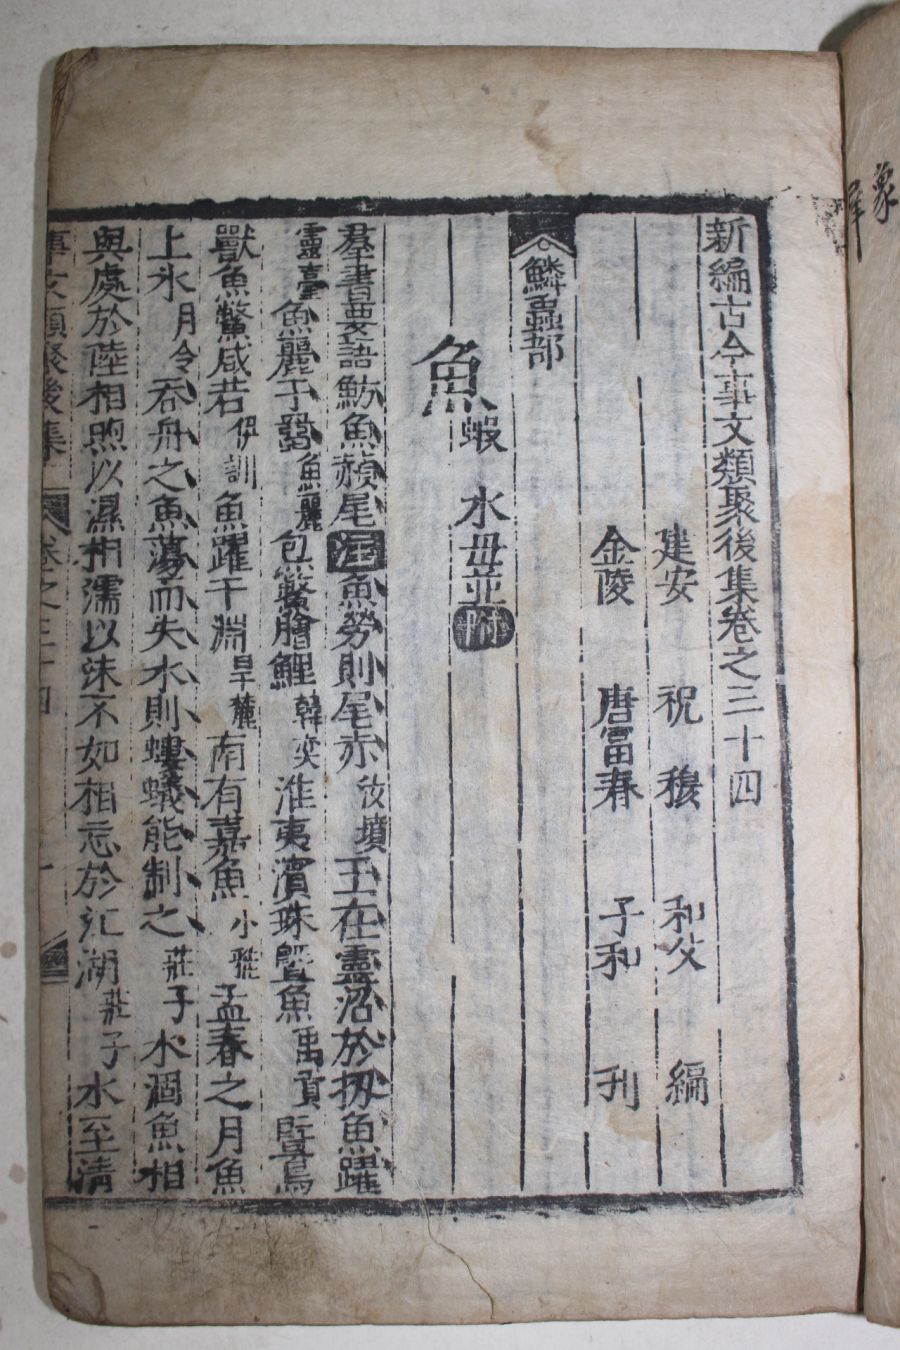 新編古今事文類聚後集卷之三十四
建安 祝穆 和父 編
金陵 唐富春 子和 刋
鱗蟲部
魚蝦 水母並附
羣書要語魴魚赬尾注魚勞則尾赤汝墳王在靈沼於牣魚躍
靈臺魚麗于罶魚麗包鱉膾鯉韓奕淮夷濱珠曁魚禹貢曁鳥
獸魚鱉咸若伊訓魚躍于淵旱麓南有嘉魚小雅孟春之月魚
上氷月令吞舟之魚蕩而失水則螻蟻能制之莊子水涸魚相
與處於陸相煦以濕相濡以沫不如相忘於江湖莊子水至清
事文類聚後集 卷之三十四
象